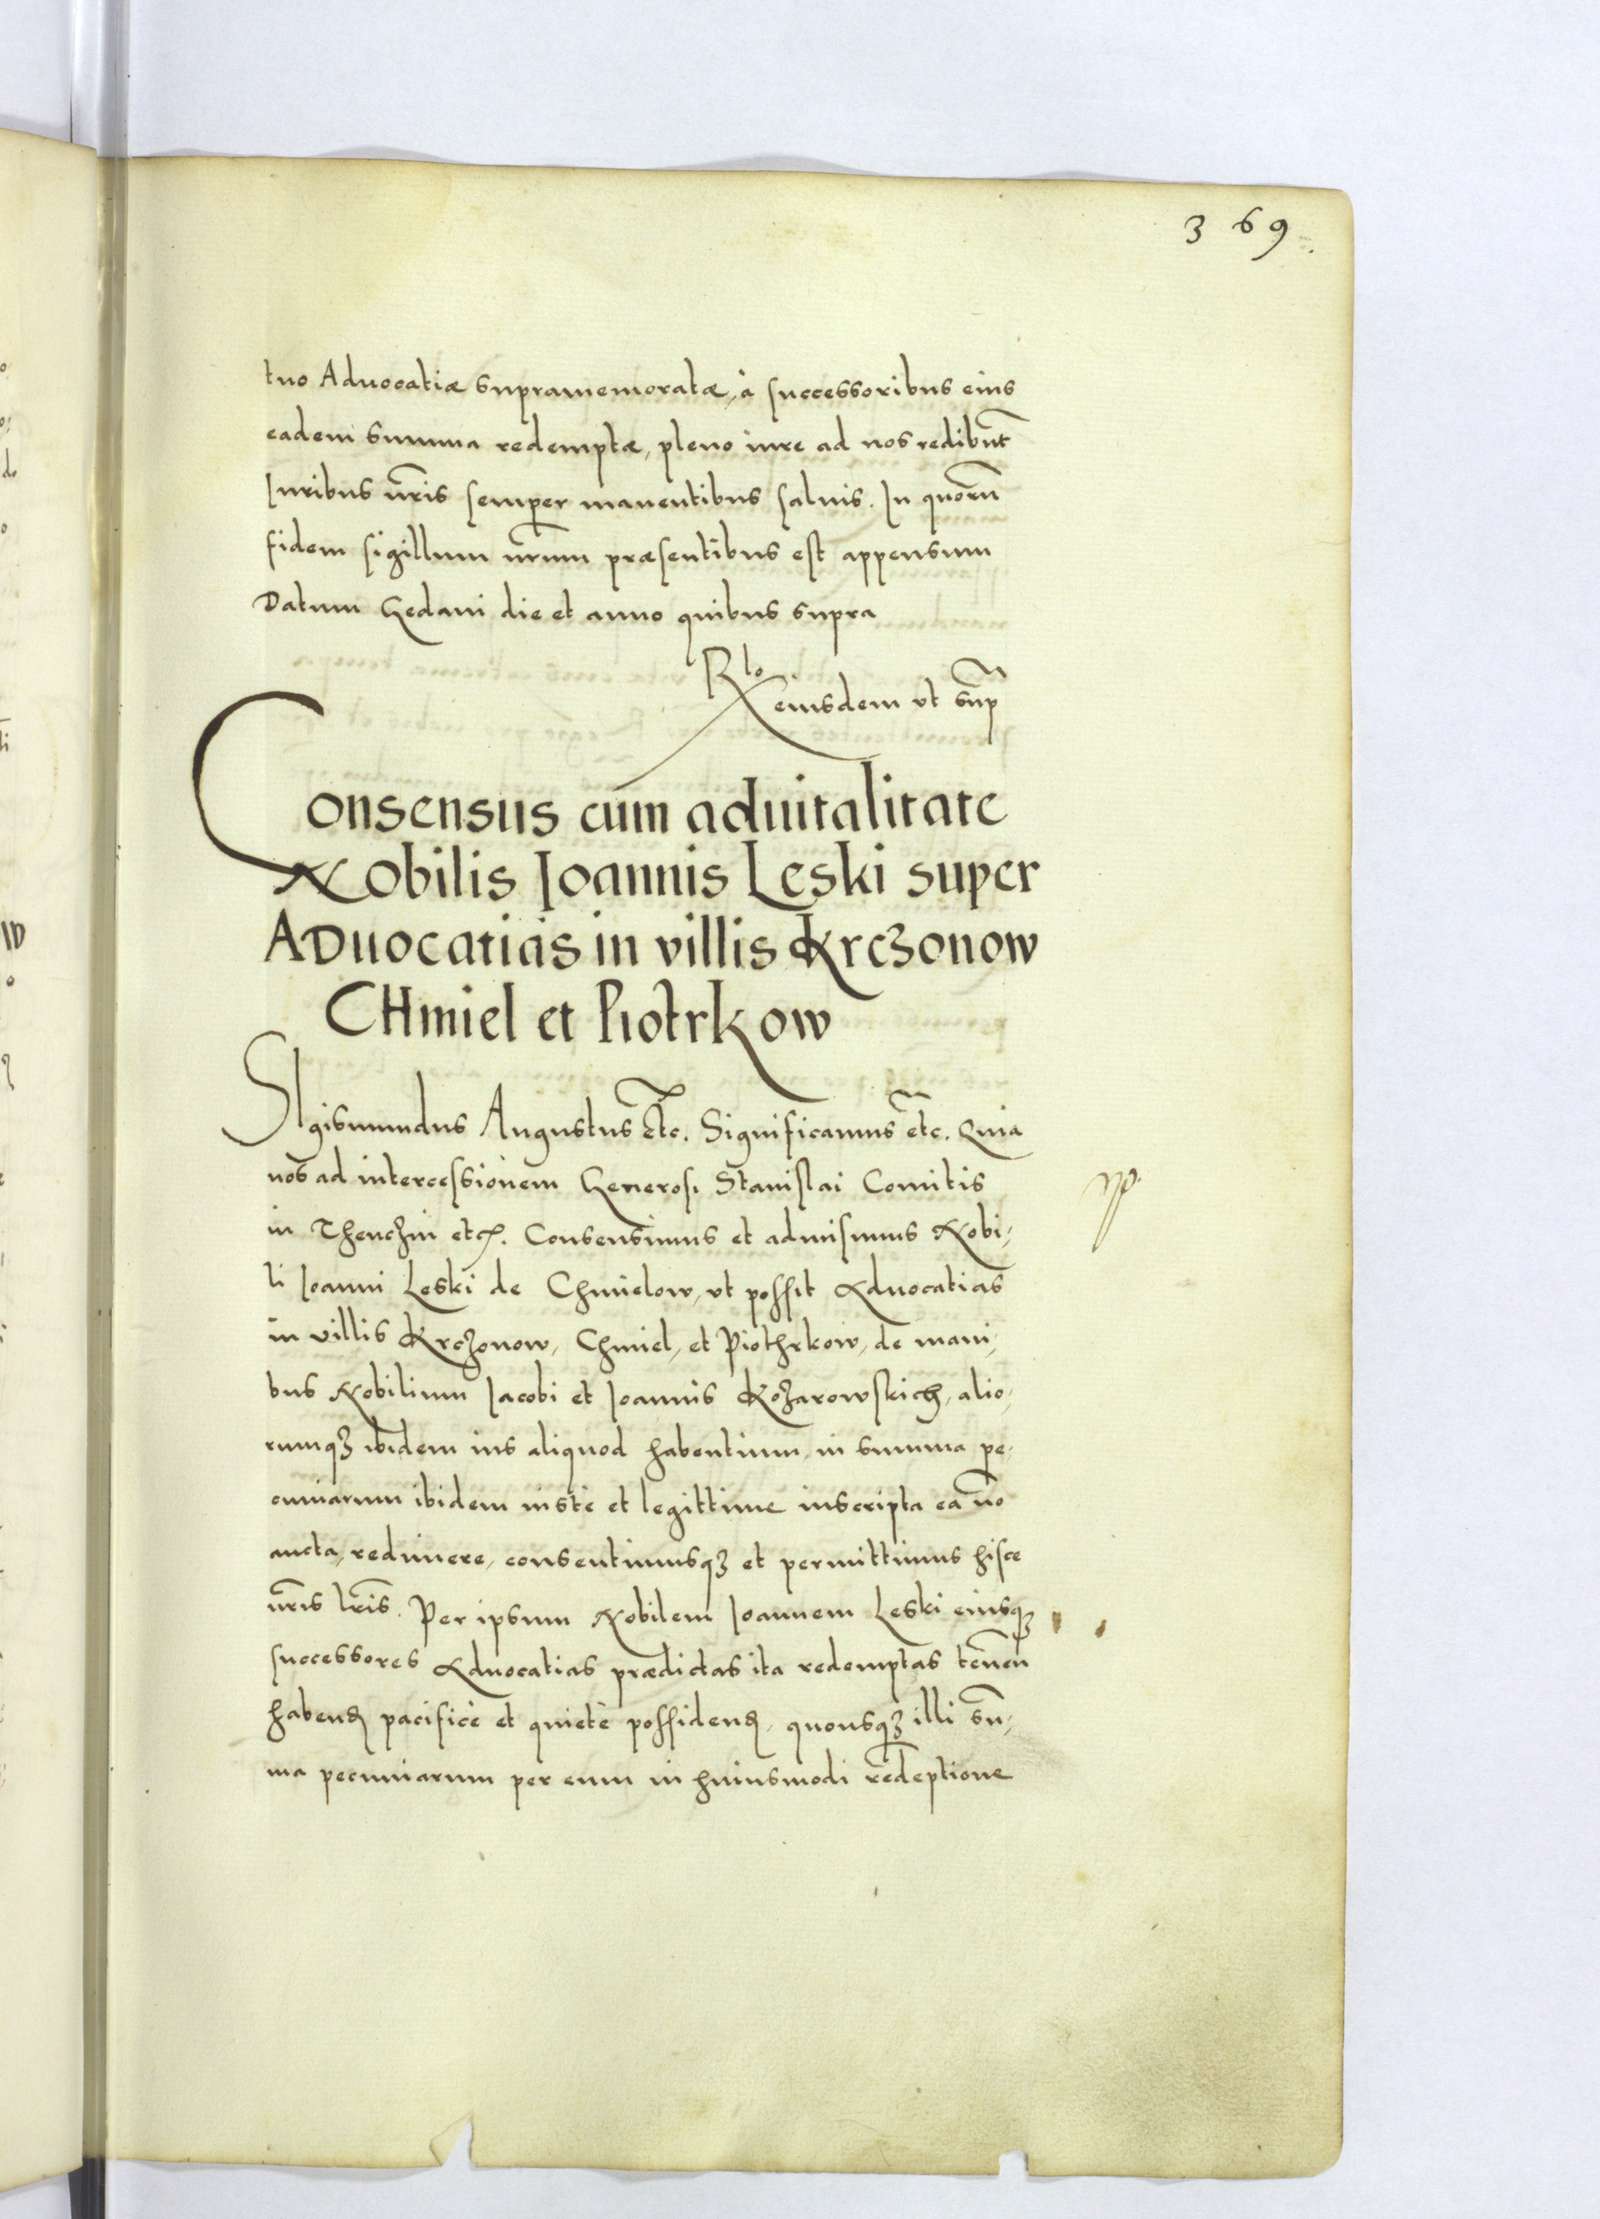 369.
tuo Aduocatiæ supramemoratæ, à successoribus eius
eadem summa redemptæ, pleno iure ad nos redibūt
Iuribus nr̃is semper manentibus saluis. In quorū
fidem sigillum nr̃um præsentibus est appensum
Datum Gedani die et anno quibus supra
Rlo eiusdem vt sup̃
Consensus cum aduitalitate
Nobilis Ioannis Leski super
Aduocatias in villis Krczonow
CHmiel et Piotrkow
SIgismundus Augustus etc. Significamus etc. Quia
nos ad intercessionem Generosi Stanislai Comitis
in Thenczin etc. Consensimus et admisimus Nobi,
li Ioanni Leski de Chmielow, vt possit Aduocatias
in villis Krczonow, Chmiel, et Piothrkow, de mani,
bus Nobilium Iacobi et Ioannis Kozarowskich, alio,
rumqʒ ibidem ius aliquod habentium, in summa pe,
cuniarum ibidem iustè et legittime inscripta ea nõ
aucta, redimere, consentimusqʒ et permittimus hisce
nr̃is lr̃is. Per ipsum Nobilem Ioannem Leski eiusqʒ
successores Aduocatias prædictas ita redemptas tenen̄
habenꝺ pacificè et quietè possidenꝺ, quousqʒ illi sum̄,
ma pecuniarum per eum in huiusmodi redēptione